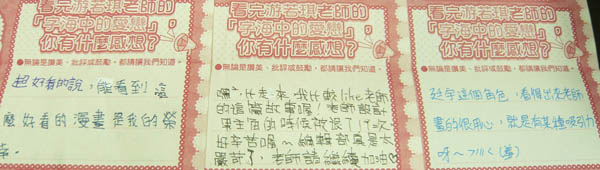 看完游若琪老師的
「字海中的愛戀」，
你有什麼感想？
●無論是讚美、批評或鼓勵，都請讓我們知道。
超好看的說，能看到這
麼好看的漫畫是我的榮
幸。
看完游若琪老師的
「字海中的愛戀」，
你有什麼感想？
●無論是讚美、批評或鼓勵，都請讓我們知道。
我比較like老師
的這篇故事喔！老師說
好辛苦喔～編輯部真是太
嚴苛了，老師請繼續加油♡
看完游若琪老師的
「字海中的愛戀」，
你有什麼感想？
●無論是讚美、批評或鼓勵，都請讓我們知道。
廷宇這個角色，看得出來老師
畫的很用心，就是有某種吸引力
呀～